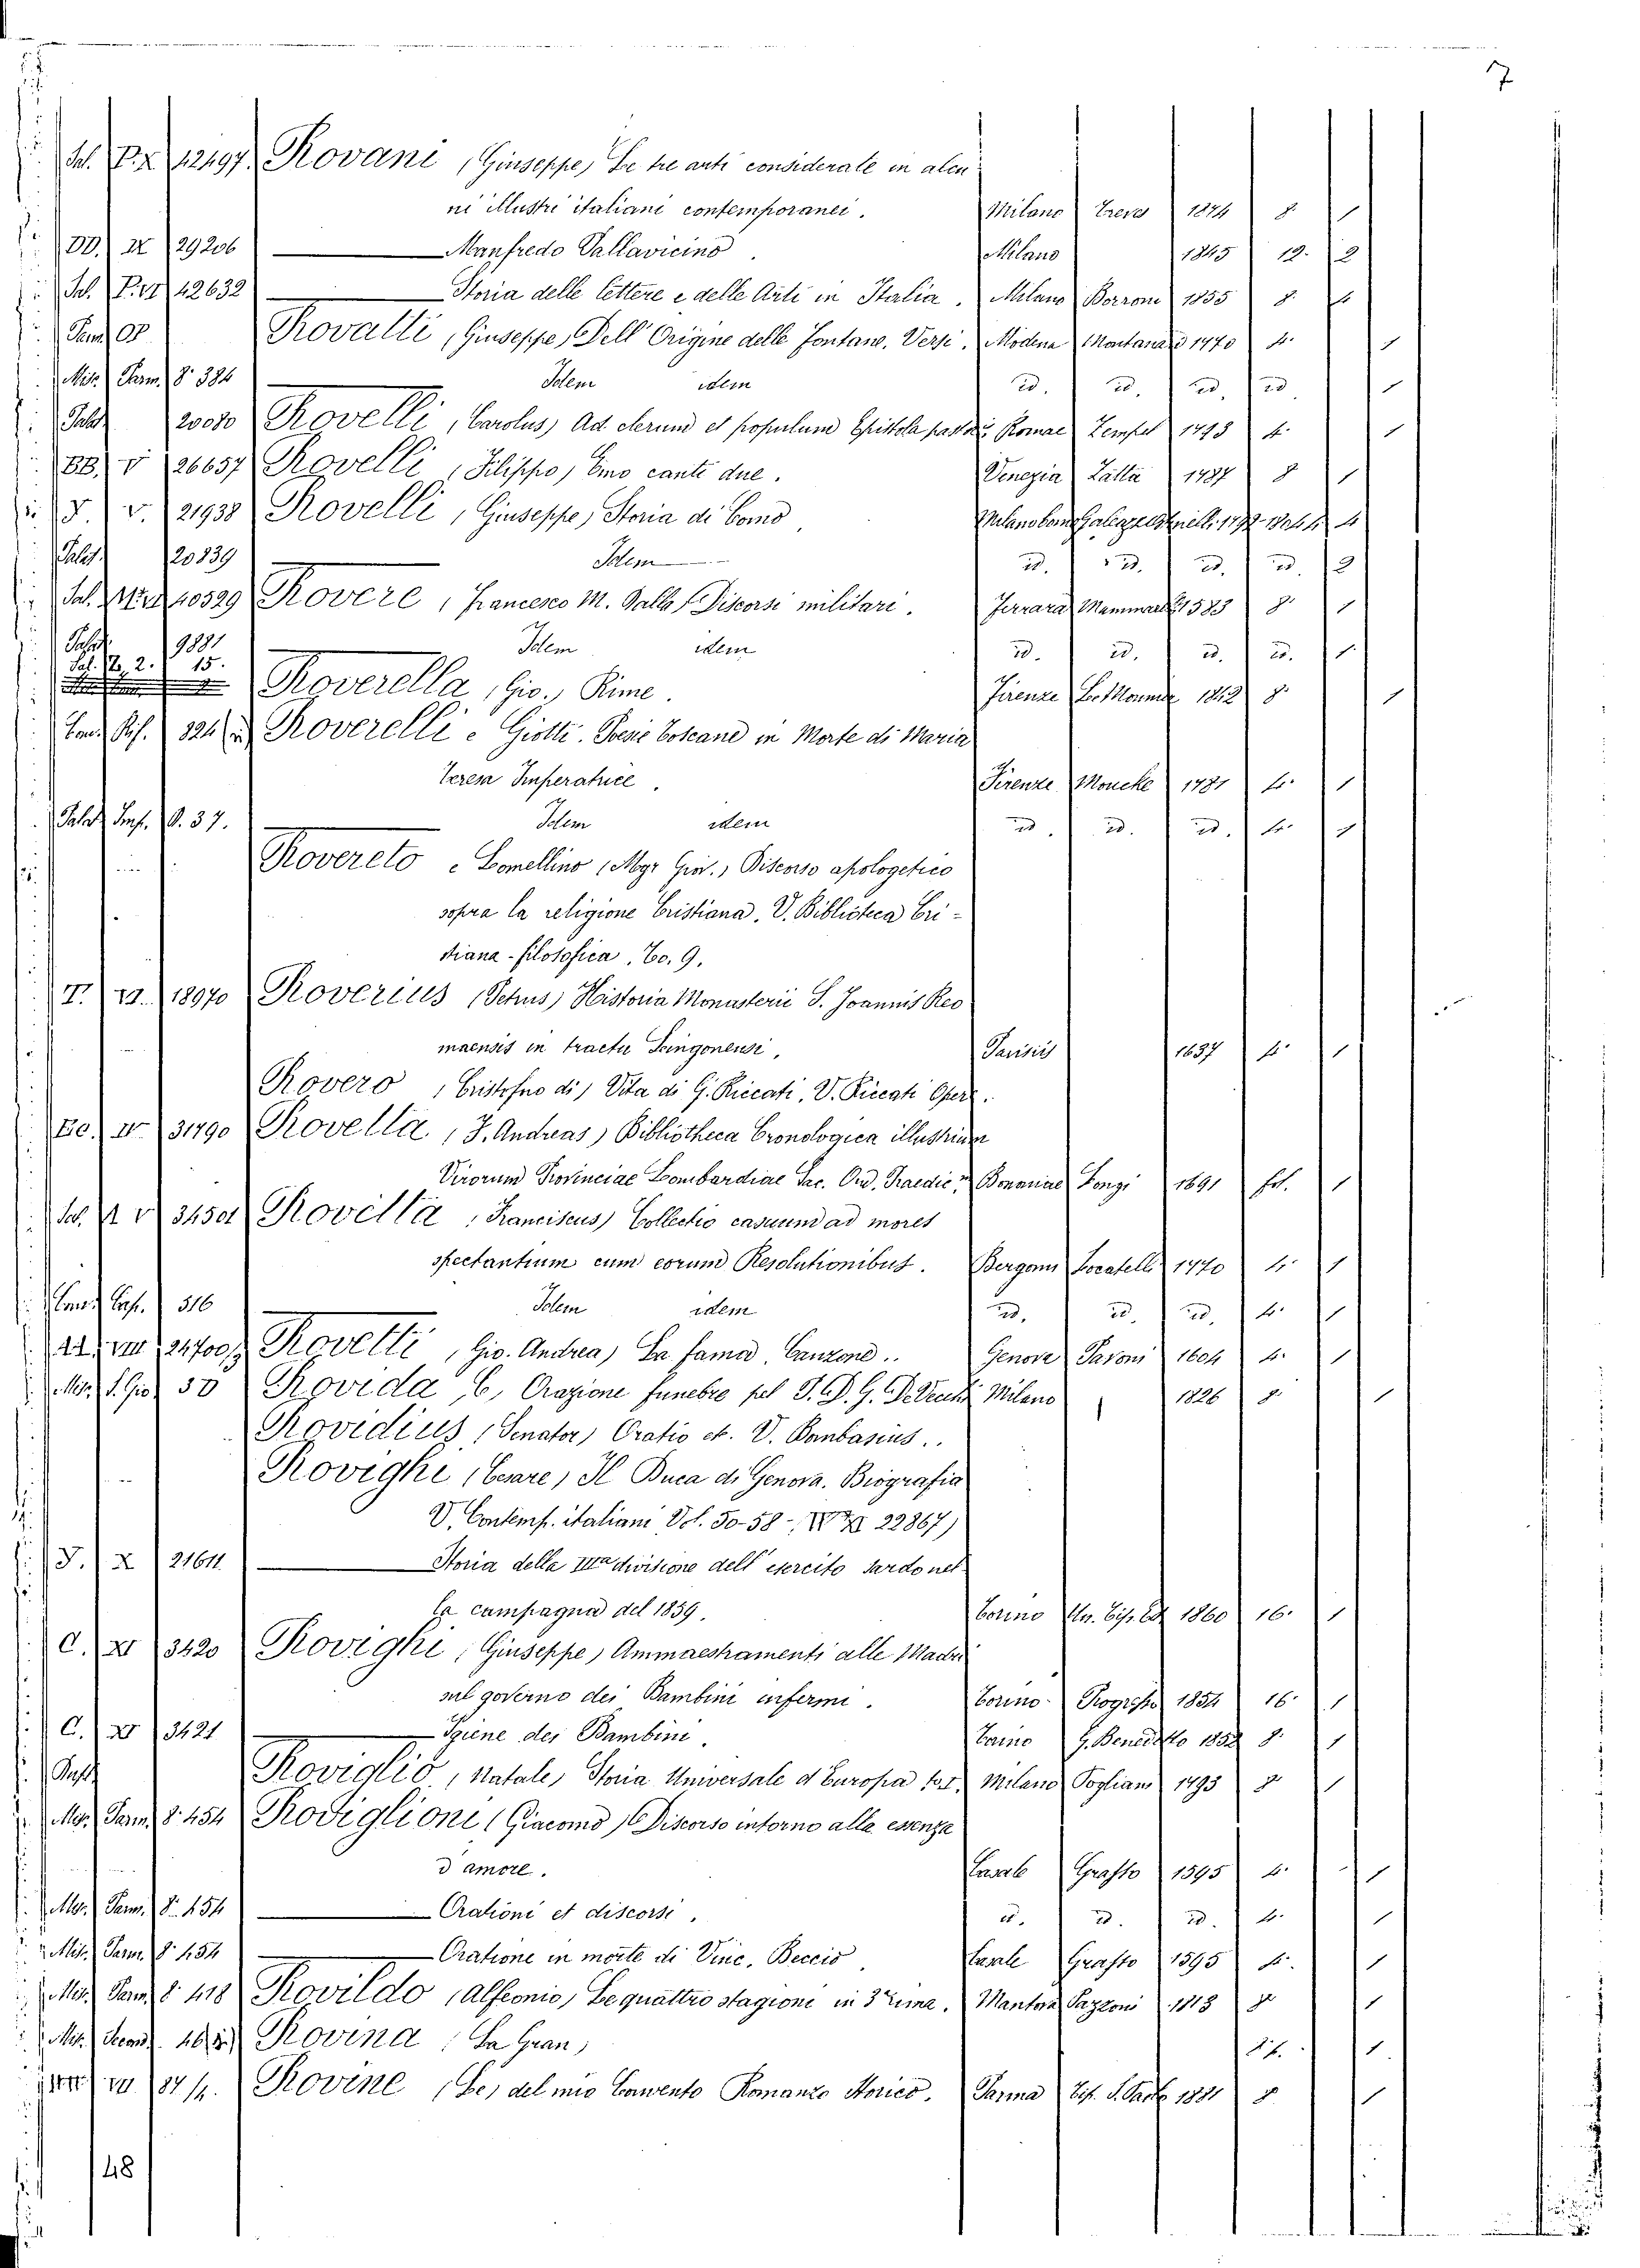 7
Sal. P. X 12497 Rovani (Giuseppe) Le tre arti considerate in alcu
ni illustri italiani contemporanei. Milano Treves 1874 8° 1
DD. IX 29206 Manfredo Pallavicino. Milano 1845 12. 2
Sal. P. VI 42632 Storia delle lettere e delle Arti in Italia. Milano Borroni 1855 8° 4
Parm. OP Rovatti (Giuseppe) Dell' Origine delle Fontane. Versi. Modena Montanari 1770 4° 1
Mis. Parm. 8° 384 Idem idem id. id. id. id. 1
Palat 20070 Rovelli (Carolus) Ad clerum et populum Epistola pastor: Romae Zempel 1793 4° 1
BB. V 26657 Rovelli (Filippo) Emo canti due. Venezia Zatta 1787 8 1
F. V. 21938 Rovelli (Giuseppe) Storia di Como
Palat. 20839 Idem id. id. id. id. 2
40529 Rovere (Francesco M. dalla) Discorsi militari. Ferrara Mammarelli 1583 8° 1
Palat. 9881 Idem idem id. id. id. id. 1
Sal. 2. 15. Roverella (Gio.) Rime. Firenze Le Monnier 1862 8° 1
324 Roverelli e Giotti. Poesie Toscane in Morte di Maria
Teresa Imperatrice. Firenze Moucke 1781 4° 1
Palat. Imp. O. 37. Idem idem id. id. id. 4° 1
Rovereto e Lomellino (Mgr Gio.) Discorso apologetico
sopra la religione Cristiana. V. Biblioteca Cri-
stiana-filosofica, To. 9.
T. VI. 18970 Roverius (Petrus) Historia Monasterii S. Joannis Reo
maensis in tractu Lingonensi. Parisiis 1637 4° 1
Rovero (Cristoforo di) Vita di G. Riccati. V. Riccati Opere.
EE. IV 31790 Rovetta (F. Andreas) Bibliotheca Cronologica illustrium
Virorum Provinciae Lombardiae Sac. Ord. Praedic.m Bononiae Longi 1691 fol. 1
Sal. V 34501 Rovetta (Franciscus) Collectio casuum ad mores
spectantium cum eorum Resolutionibus. Bergomi Locatelli 1770 4° 1
516 Idem idem id. id. id. 4° 1
VIII 24700 Rovetti (Gio. Andrea) La fama. Canzone. Genova Pavoni 1604 4° 1
Mis. S. Gio. 50 Rovida C. Orazione funebre Milano 1826 8° 1
Rovidius (Senator) Oratio et. V. Bombasius.
Rovighi (Cesare) Il Duca di Genova. Biografia
V. Contemp. italiani Vol. 50-58 22867)
F. X 21611 Storia della IIIa divisione dell' esercito sardo nel
la campagna del 1859. Torino Un. Tip. Ed. 1860 16° 1
C. XI 3420 Rovighi (Giuseppe) Ammaestramenti alle Madri
sul governo dei Bambini infermi. Torino Progresso 1854 16° 1
C. XI 3421 Igiene dei Bambini. Torino G. Benedetto 1852 8° 1
Roviglio (Natale) Storia Universale d'Europa Milano Pogliani 1793 8° 1
Mis. Parm. 8° 454 Roviglioni (Giacomo) Discorso intorno alla essenza
d'amore. Casale Grasso 1595 4° 1
Mis. Parm. 8° 454 Orationi et discorsi. id. id. id. 4° 1
Mis. Parm. 8° 454 Oratione in morte di Vinc. Beccio. Casale Grasso 1595 4° 1
Mis. Parm. 8° 418 Rovildo (Alfeonio) Le quattro stagioni in 3 rima. Mantova Pazzoni 1713 8° 1
Rovina (La Gran) 1
VII 87/4. Rovine (Le) del mio Convento Romanzo Storico. Parma Tip. S. Paolo 1881 8 1
48